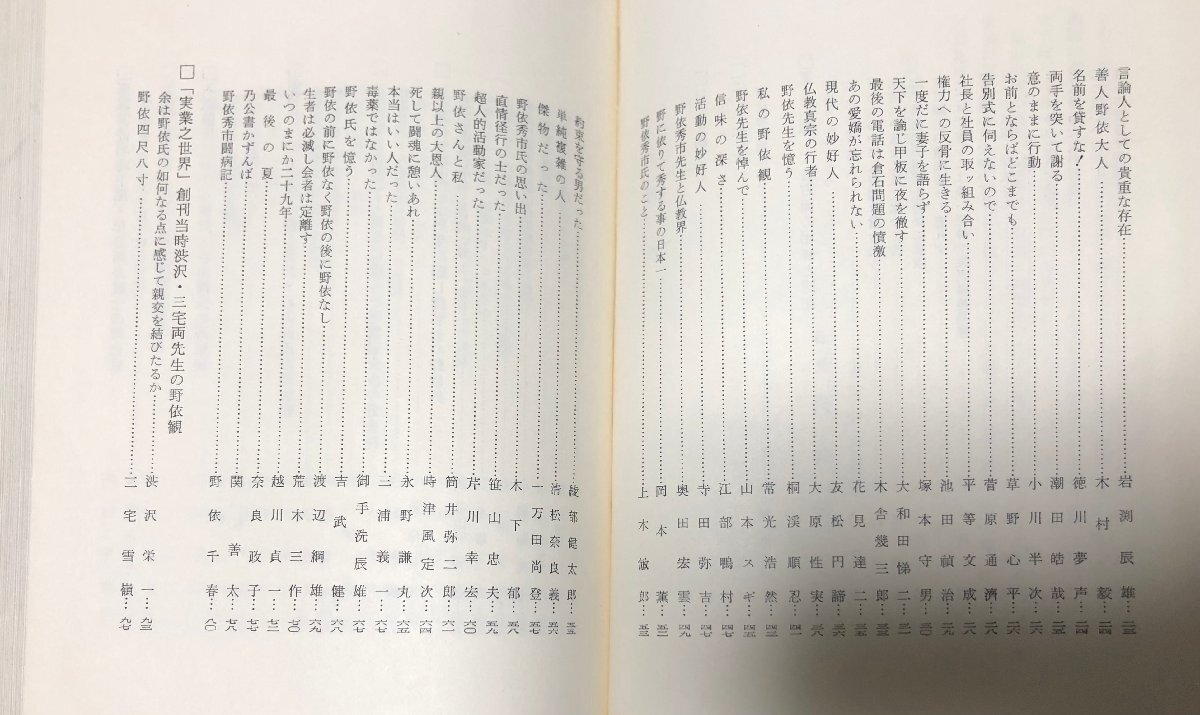 言論人としての貴重な存在……岩渕辰雄…二三
善人野依大人……木村毅…二四
名前を貸すな！……徳川夢声…二四
両手を突いて謝る……潮田皓哉…二五
意のままに行動……小川半次…二六
お前とならばどこまでも……草野心平…二六
告別式に伺えないので……菅原通済…二八
社長と社員の取ッ組み合い……平等文成…二八
権力への反骨に生きる……池田禎治…二九
一度だに妻子を語らず……塚本守男…三〇
天下を論じ甲板に夜を徹す……大和田悌二…三一
最後の電話は倉石問題の憤激……木舎幾三郎…三三
あの愛嬌が忘れられない……花見達二…三三
現代の妙好人……友松円諦…三六
仏教真宗の行者……大原性実…三八
野依先生を憶う……桐渓順忍…四一
私の野依観……常光浩然…四三
野依先生を悼んで……山本スギ…四五
信味の深さ……江部鴨村…四六
活動の妙好人……寺田弥吉…四七
野依秀市先生と仏教界……奥田宏雲…四九
野に依りて秀する事の日本一……岡本薫…五二
野依秀市氏のこと……上木敏郎…五三
約束を守る男だった……綾部健太郎…五五
単純複雑の人……清松奈良義…五六
傑物だった……一万田尚登…五七
野依秀市氏の思い出……木下郁…五八
直情径行の士だった……笹山忠夫…五九
超人的活動家だった……芹川幸宏…六〇
野依さんと私……筒井弥二郎…六一
親以上の大恩人……時津風定次…六四
死して闘魂に憩いあれ……永野謙丸…六五
本当はいい人だった……三浦義一…六六
毒薬ではなかった……御手洗辰雄…六七
野依氏を憶う……吉武健…六八
野依の前に野依なく野依の後に野依なし……渡辺綱雄…六九
生者は必滅し会者は定離す……荒木三作…七〇
いつのまにか二十九年……越川貞一…七二
最後の夏……奈良政子…七六
乃公書かずんば……関善太…七八
野依秀市闘病記……野依千春…八〇
□「実業之世界」創刊当時渋沢・三宅両先生の野依観
余は野依氏の如何なる点に感じて親交を結びたるか……渋沢栄一…九三
野依四尺八寸……三宅雪嶺…九七